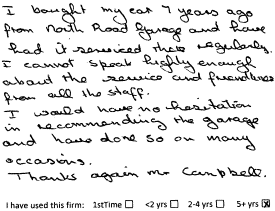 I bought my car 7 years ago
from North Road Garage and have
had it serviced there regularly.
I cannot speak highly enough
about the service and friendliness
from all the staff.
I would have no hesitation
in recommending the garage
and have done so on many
occasions.
Thanks again Mr Campbell.
I have used this firm: 1stTime ☐ <2 yrs ☐ 2-4 yrs ☐ 5+ yrs ☒